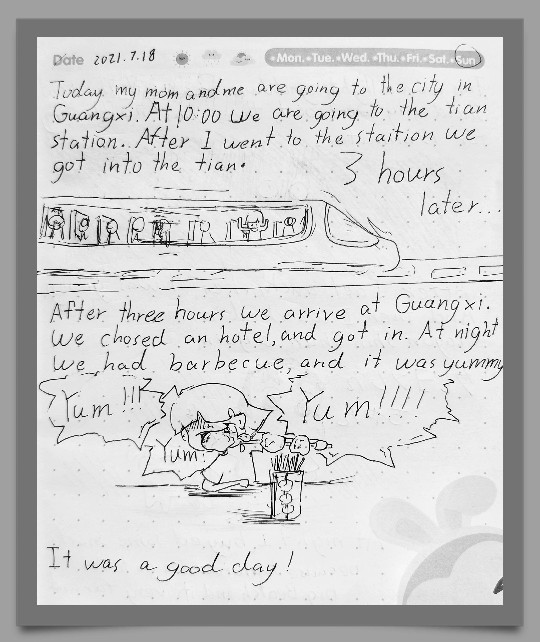 Date 2021.7.18
•Mon.•Tue.•Wed.•Thu.•Fri.•Sat.•Sun
Today my mom and me are going to the city in
Guangxi. At 10:00 we are going to the tian
station. After I went to the staition we
got into the tian.
3 hours
later...
After three hours we arrive at Guangxi.
We chosed an hotel, and got in. At night
we had barbecue, and it was yummy
Yum!!!
Yum!!!!
Yum!
It was a good day!